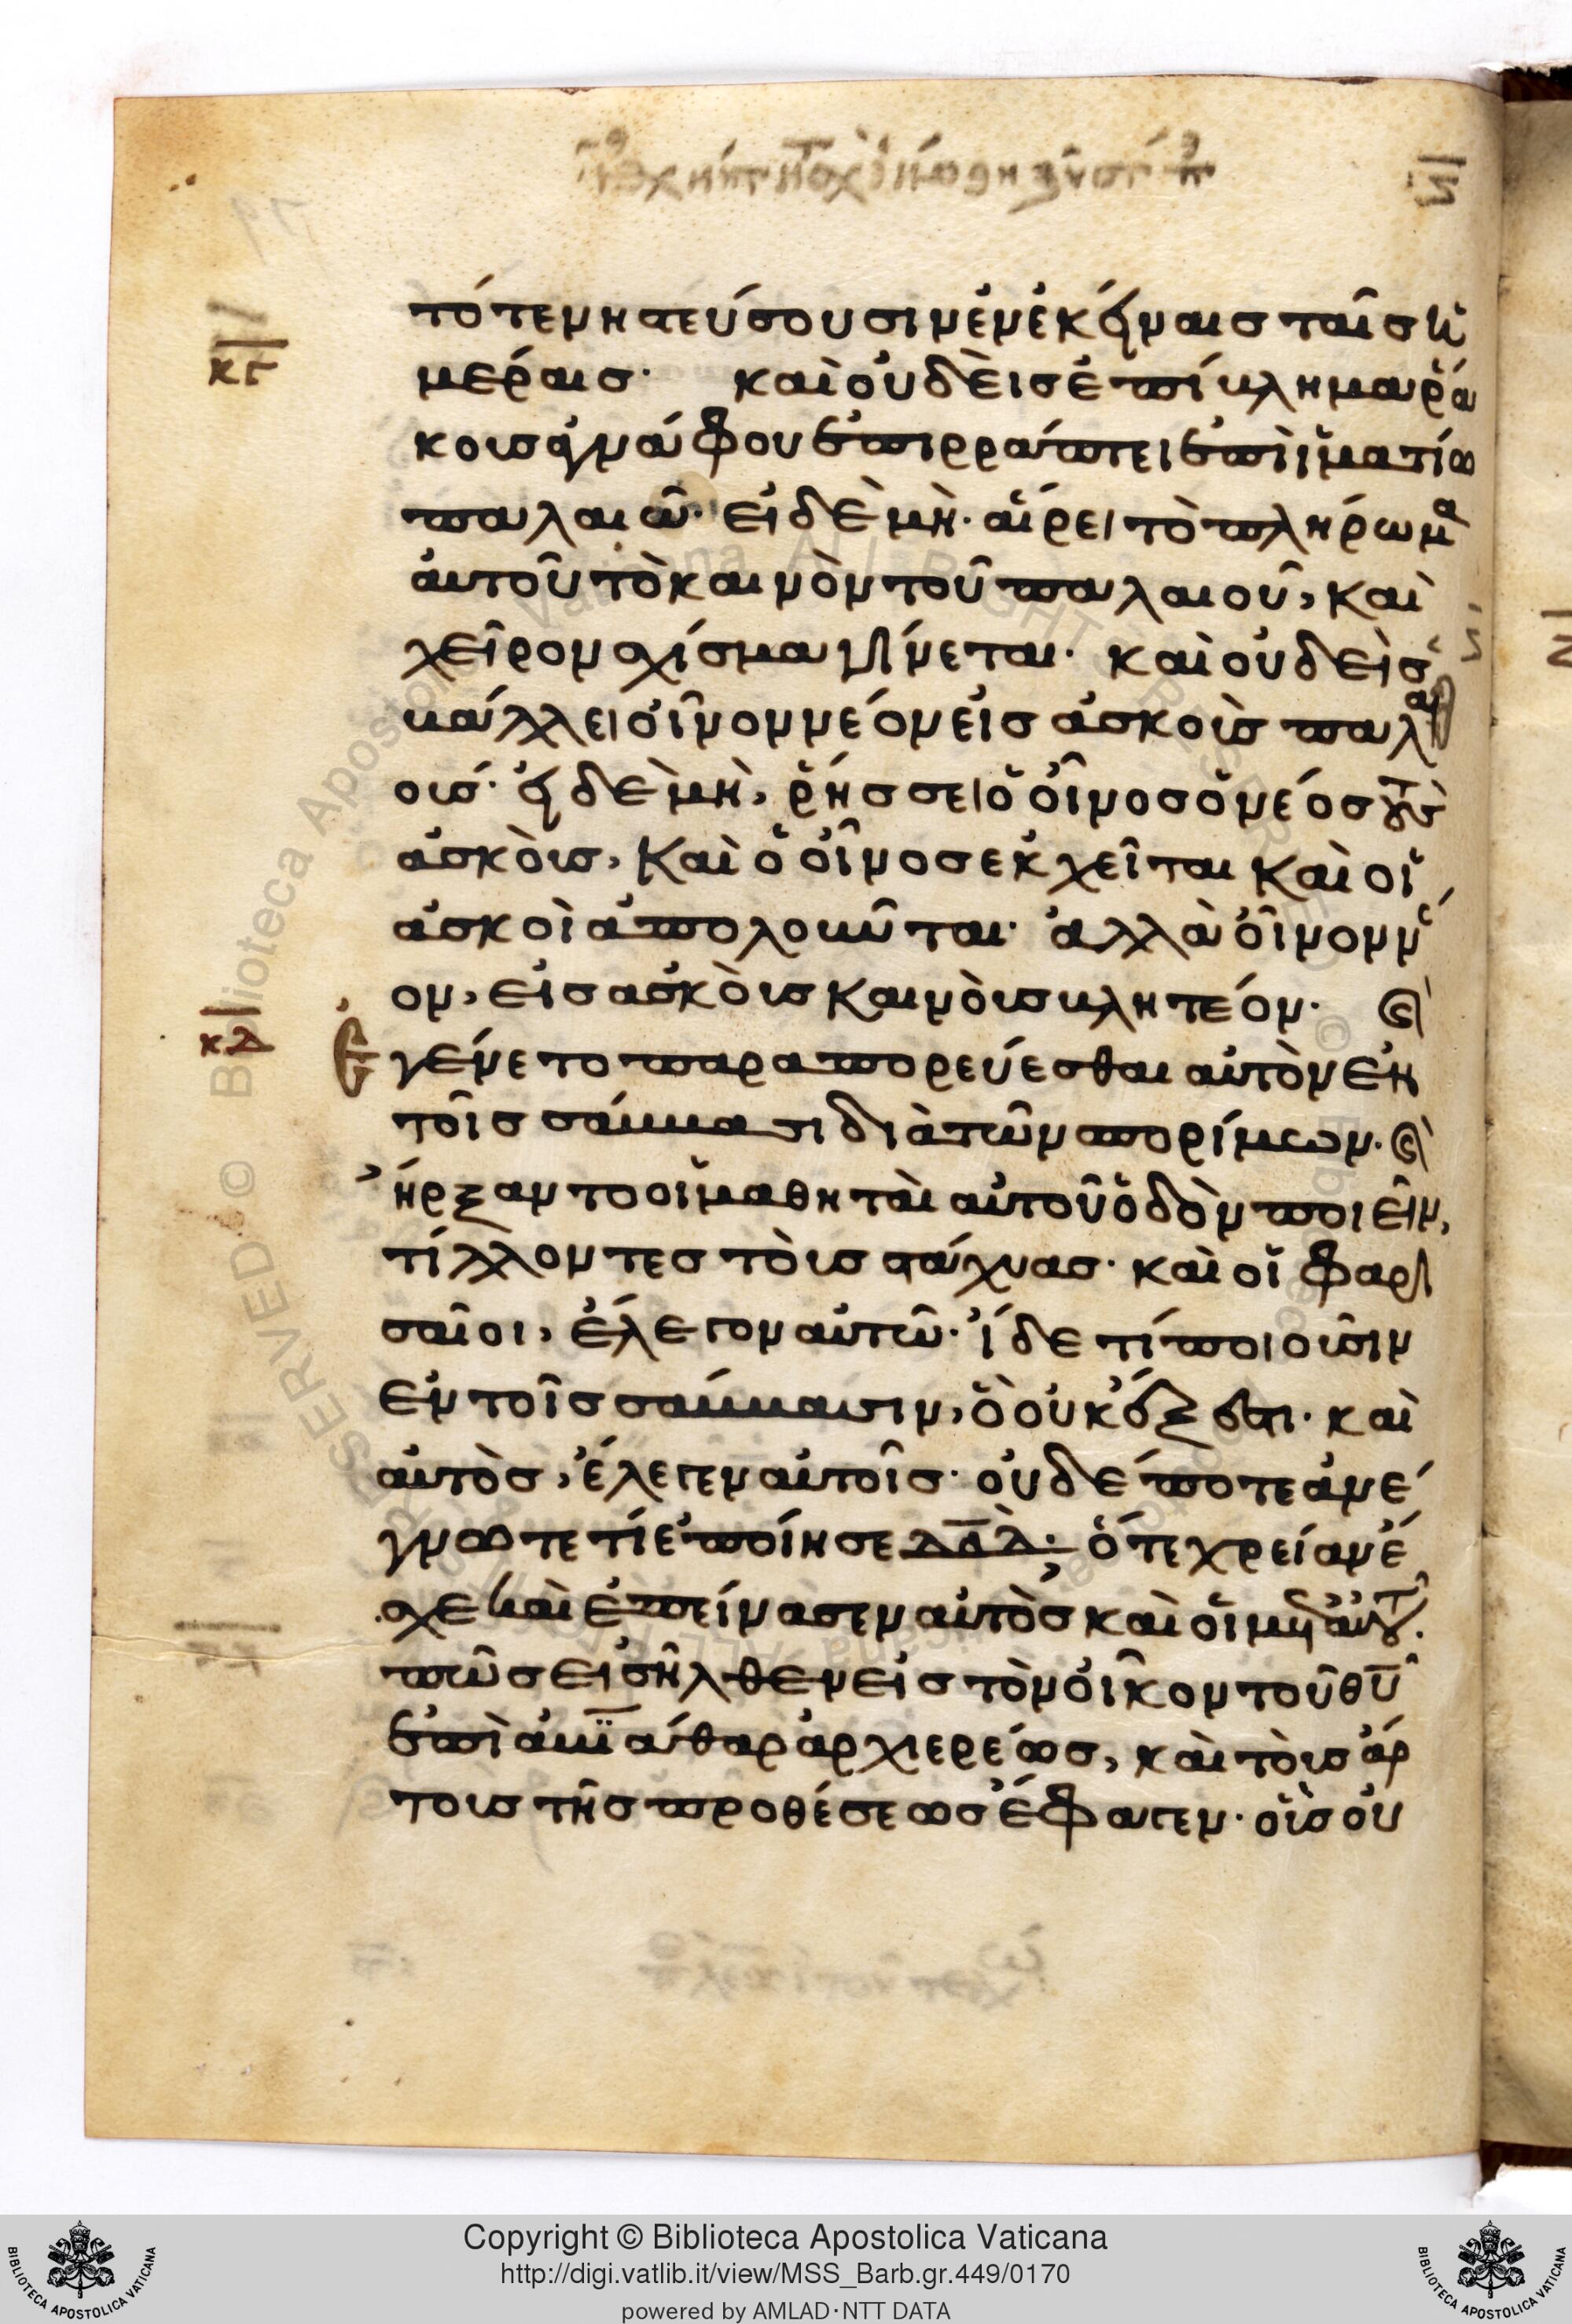 τότε νηστεύσουσιν ἐν ἐκείναις ταῖς ἡ
μέραις· καὶ οὐδεὶς ἐπίβλημα ῥά
κους ἀγνάφου ἐπιρράπτει ἐπὶ ἱματίω
παλαιῶ· εἰ δὲ μὴ· αἴρει τὸ πλήρωμα
αὐτοῦ τὸ καινὸν τοῦ παλαιοῦ, καὶ
χεῖρον σχίσμα γίνεται· καὶ οὐδεὶς
βάλλει οἶνον νέον εἰς ἀσκοὺς παλαι
οὺς· εἰ δὲ μὴ, ῥήσσει ὁ οἶνος ὁ νέος τοὺς
ἀσκοὺς, καὶ ὁ οἶνος ἐκχεῖται καὶ οἱ
ἀσκοὶ ἀπολοῦνται· ἀλλὰ οἶνον νέ
ον, εἰς ἀσκοὺς καινοὺς βλητέον· ϗ
κδ
Ἐγένετο παραπορεύεσθαι αὐτὸν ἐν
τοῖς σάββασι διὰ τῶν σπορίμων· ϗ
ἤρξαντο οἱ μαθηταὶ αὐτοῦ ὁδὸν ποιεῖν,
τίλλοντες τοὺς στάχυας· καὶ οἱ φαρι
σαῖοι, ἔλεγον αὐτῶ· ἴδε τί ποιοῦσιν
ἐν τοῖς σάββασιν, ὃ οὐκ ἔξεστι· καὶ
αὐτὸς, ἔλεγεν αὐτοῖς· οὐδέποτε ἀνέ
γνωτε τί ἐποίησε δαδ· ὅτε χρείαν ἔ
σχε καὶ ἐπείνασεν αὐτὸς καὶ οἱ μετ' αὐτοῦ·
πῶς εἰσῆλθεν εἰς τὸν οἶκον τοῦ θυ
ἐπὶ ἀβϊάθαρ ἀρχιερέως, καὶ τοὺς ἄρ
τους τῆς προθέσεως ἔφαγεν· οὓς οὐ
Copyright © Biblioteca Apostolica Vaticana
http://digi.vatlib.it/view/MSS_Barb.gr.449/0170
powered by AMLAD·NTT DATA